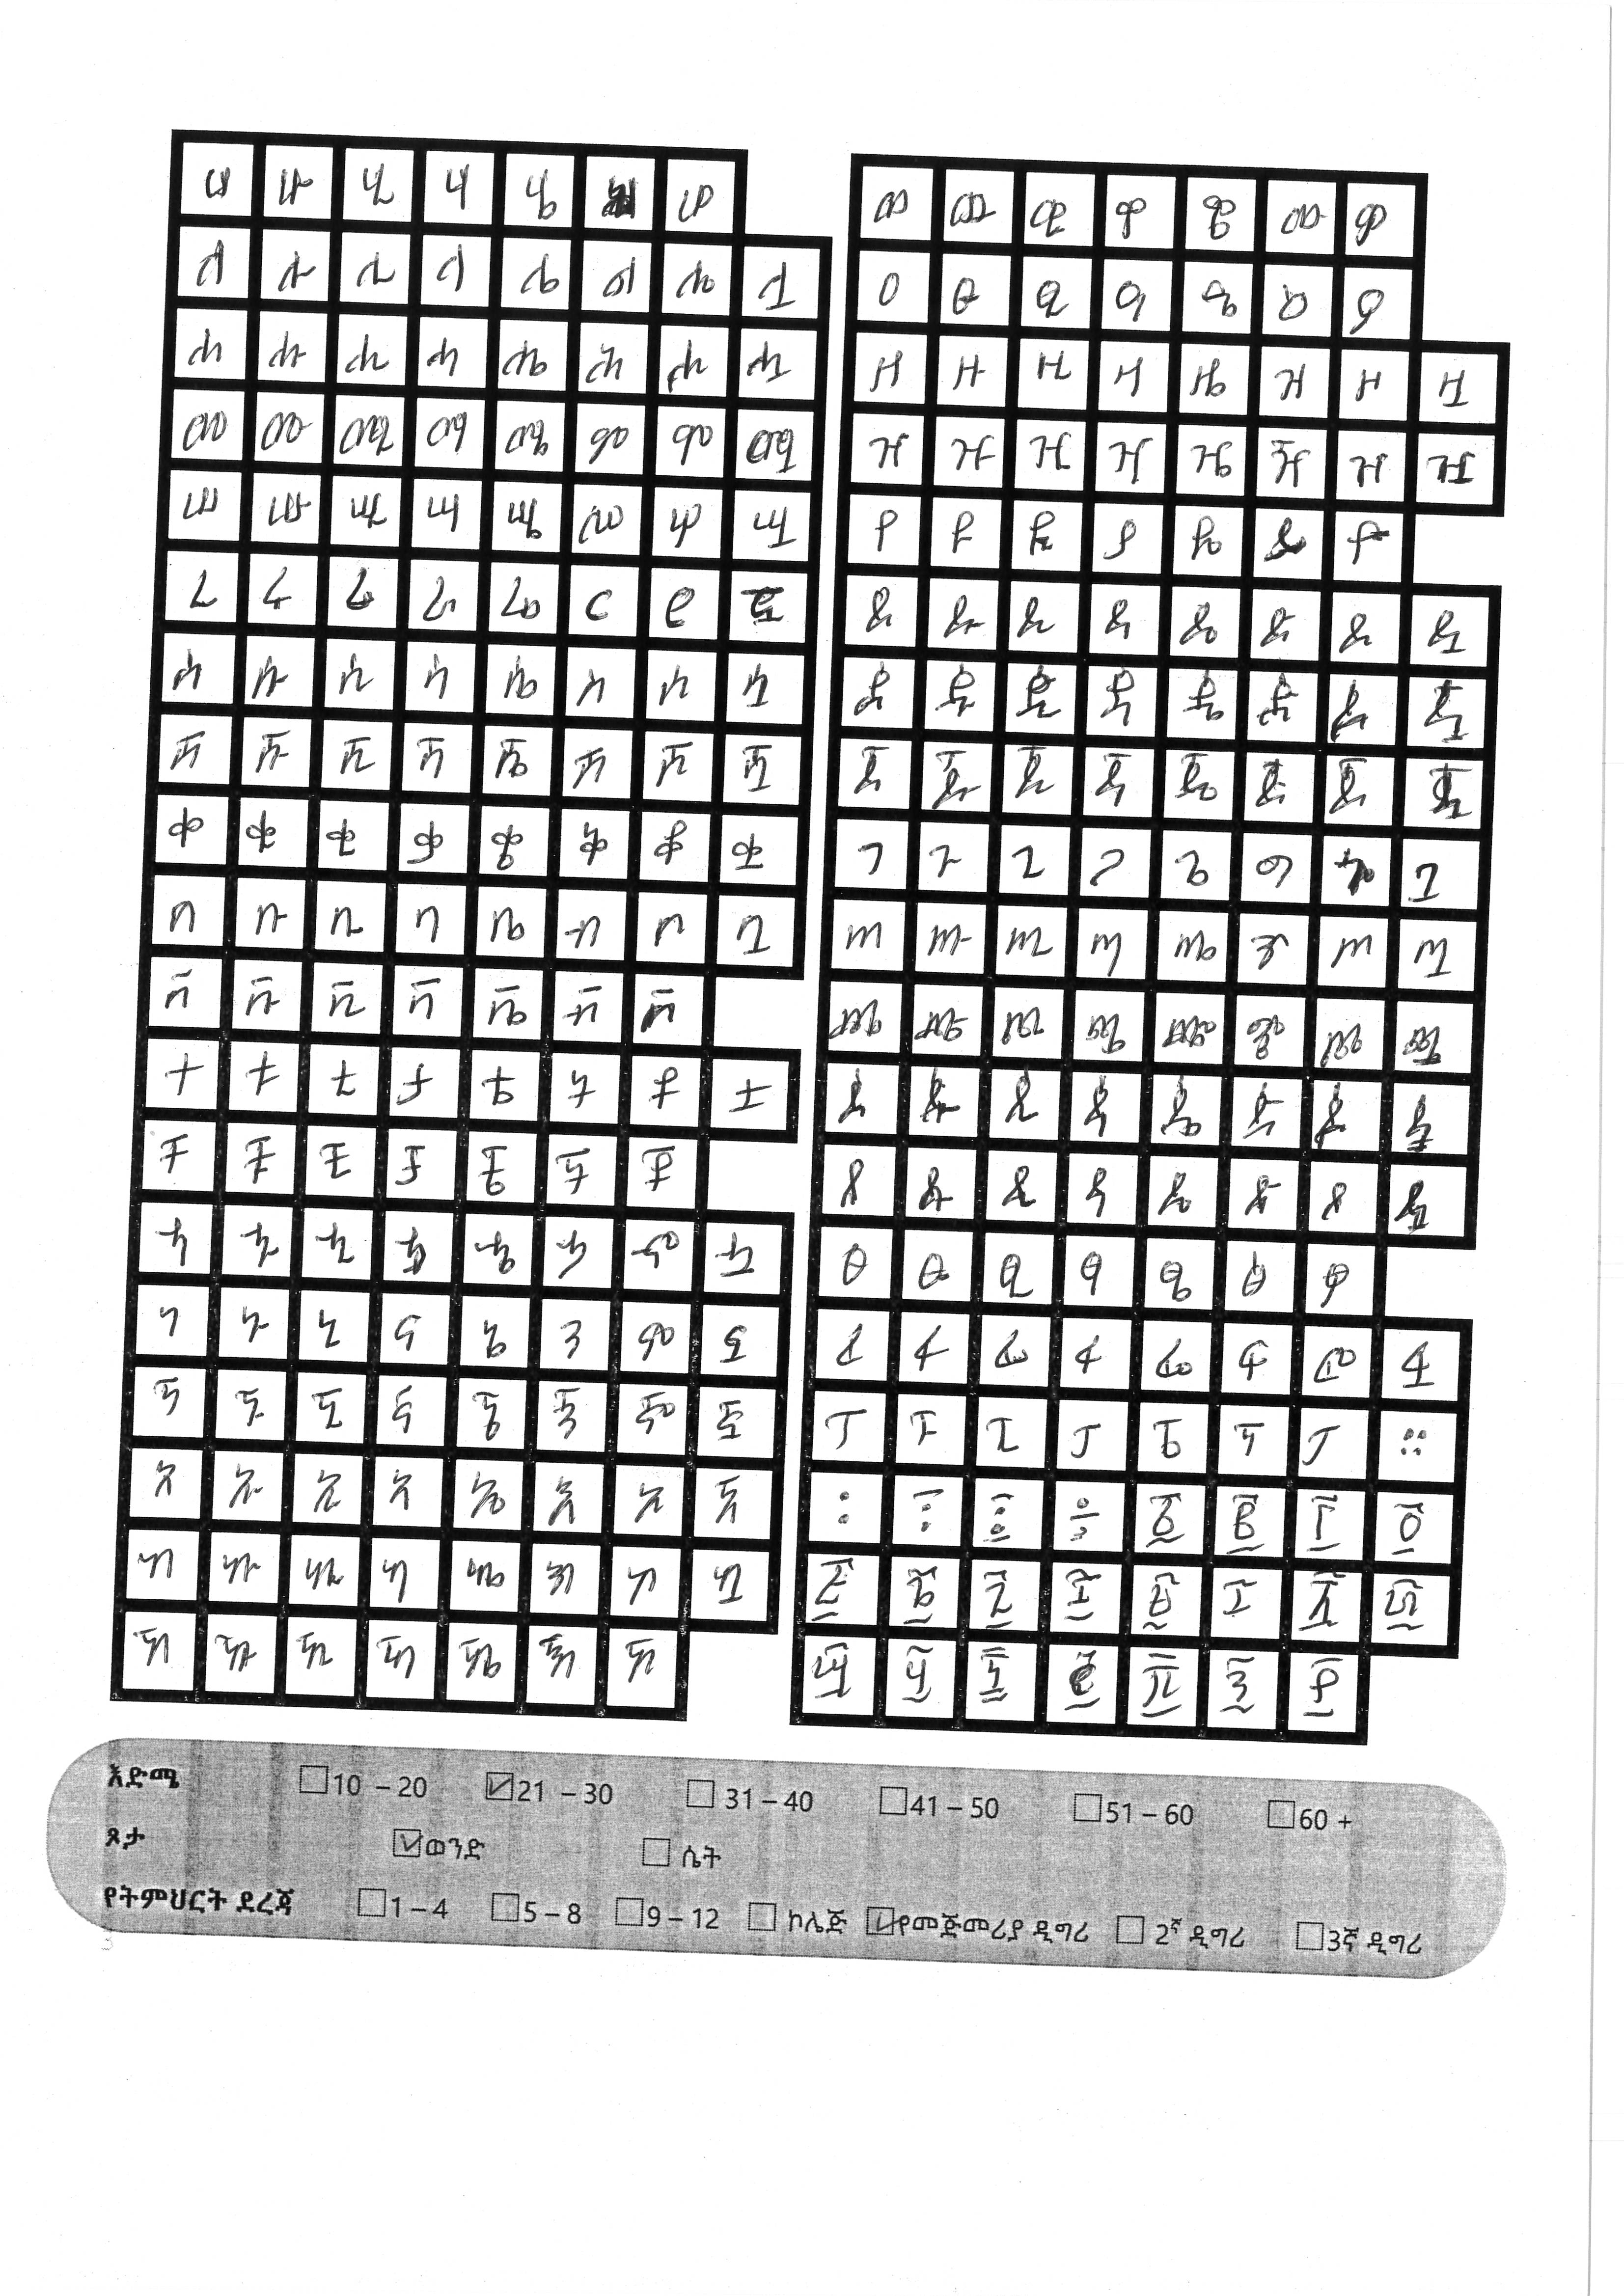 ሀ ሁ ሂ ሃ ሄ ሆ
ለ ሉ ሊ ላ ሌ ል ሎ ሏ
ሐ ሑ ሒ ሓ ሔ ሕ ሖ ሗ
መ ሙ ሚ ማ ሜ ም ሞ ሟ
ሠ ሡ ሢ ሣ ሤ ሥ ሦ ሧ
ረ ሩ ሪ ራ ሬ ር ሮ ሯ
ሰ ሱ ሲ ሳ ሴ ስ ሶ ሷ
ሸ ሹ ሺ ሻ ሼ ሽ ሾ ሿ
ቀ ቁ ቂ ቃ ቄ ቅ ቆ ቋ
በ ቡ ቢ ባ ቤ ብ ቦ ቧ
ቨ ቩ ቪ ቫ ቬ ቭ ቮ
ተ ቱ ቲ ታ ቴ ት ቶ ቷ
ቸ ቹ ቺ ቻ ቼ ች ቾ
ኀ ኁ ኂ ኃ ኄ ኅ ኆ ኋ
ነ ኑ ኒ ና ኔ ን ኖ ኗ
ኘ ኙ ኚ ኛ ኜ ኝ ኞ ኟ
አ ኡ ኢ ኣ ኤ እ ኦ ኧ
ከ ኩ ኪ ካ ኬ ክ ኮ ኳ
ኸ ኹ ኺ ኻ ኼ ኽ ኾ
ወ ዉ ዊ ዋ ዌ ው ዎ
ዐ ዑ ዒ ዓ ዔ ዕ ዖ
ዘ ዙ ዚ ዛ ዜ ዝ ዞ ዟ
ዠ ዡ ዢ ዣ ዤ ዥ ዦ ዧ
የ ዩ ዪ ያ ዬ ይ ዮ
ደ ዱ ዲ ዳ ዴ ድ ዶ ዷ
ዸ ዹ ዺ ዻ ዼ ዽ ዾ ዿ
ጀ ጁ ጂ ጃ ጄ ጅ ጆ ጇ
ገ ጉ ጊ ጋ ጌ ግ ጓ
ጠ ጡ ጢ ጣ ጤ ጥ ጦ ጧ
ጨ ጩ ጪ ጫ ጬ ጭ ጮ ጯ
ጰ ጱ ጲ ጳ ጴ ጵ ጶ ጷ
ጸ ጹ ጺ ጻ ጼ ጽ ጾ ጿ
ፀ ፁ ፂ ፃ ፄ ፅ ፆ
ፈ ፉ ፊ ፋ ፌ ፍ ፎ ፏ
ፐ ፑ ፒ ፓ ፔ ፕ ፖ ።
፡ ፣ ፤ ÷ ፩ ፪ ፫ ፬
፭ ፮ ፯ ፰ ፱ ፲ ፳ ፴
፵ ፶ ፷ ፸ ፹ ፺ ፻
እድሜ 10 – 20 21 – 30 31 – 40 41 – 50 51 – 60 60 +
ጾታ ወንድ ሴት
የትምህርት ደረጃ 1 – 4 5 – 8 9 – 12 ኮሌጅ የመጀመሪያ ዲግሪ 2ኛ ዲግሪ 3ኛ ዲግሪ